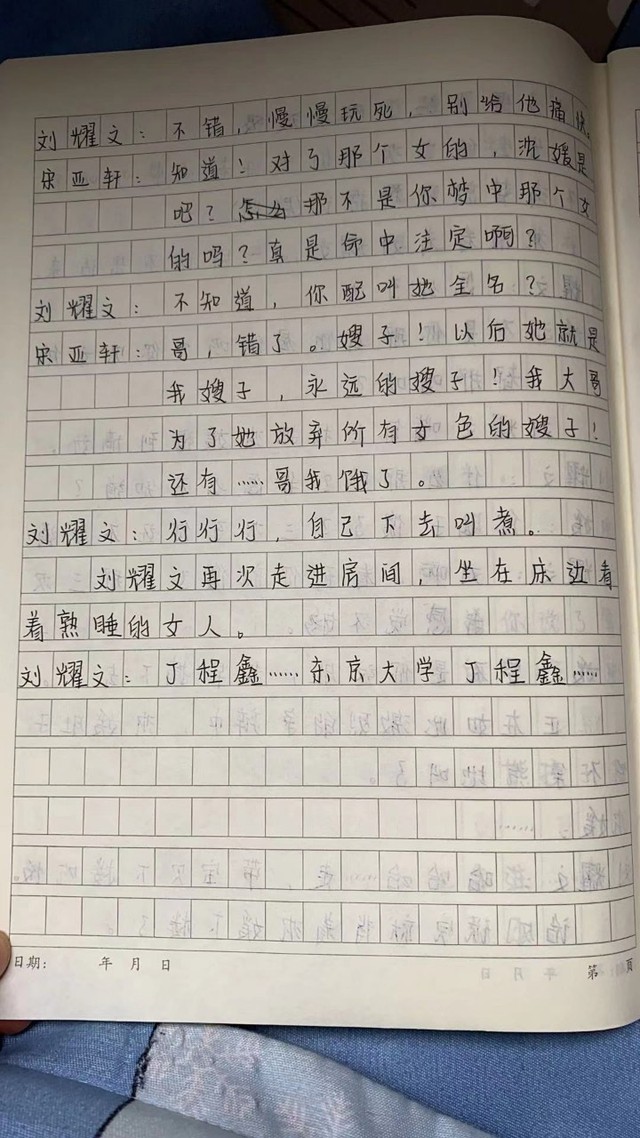 刘耀文：不错，慢慢玩死，别给他痛快。
宋亚轩：知道！对了那个女的，沈媛是
吧？那不是你梦中那个女
的吗？真是命中注定啊？
刘耀文：不知道，你配叫她全名？
宋亚轩：哥，错了。嫂子！以后她就是
我嫂子，永远的嫂子！我大哥
为了她放弃所有女色的嫂子！
还有……哥我饿了。
刘耀文：行行行，自己下去叫煮。
刘耀文再次走进房间，坐在床边看
着熟睡的女人。
刘耀文：丁程鑫……东京大学丁程鑫……
日期： 年 月 日 第 页